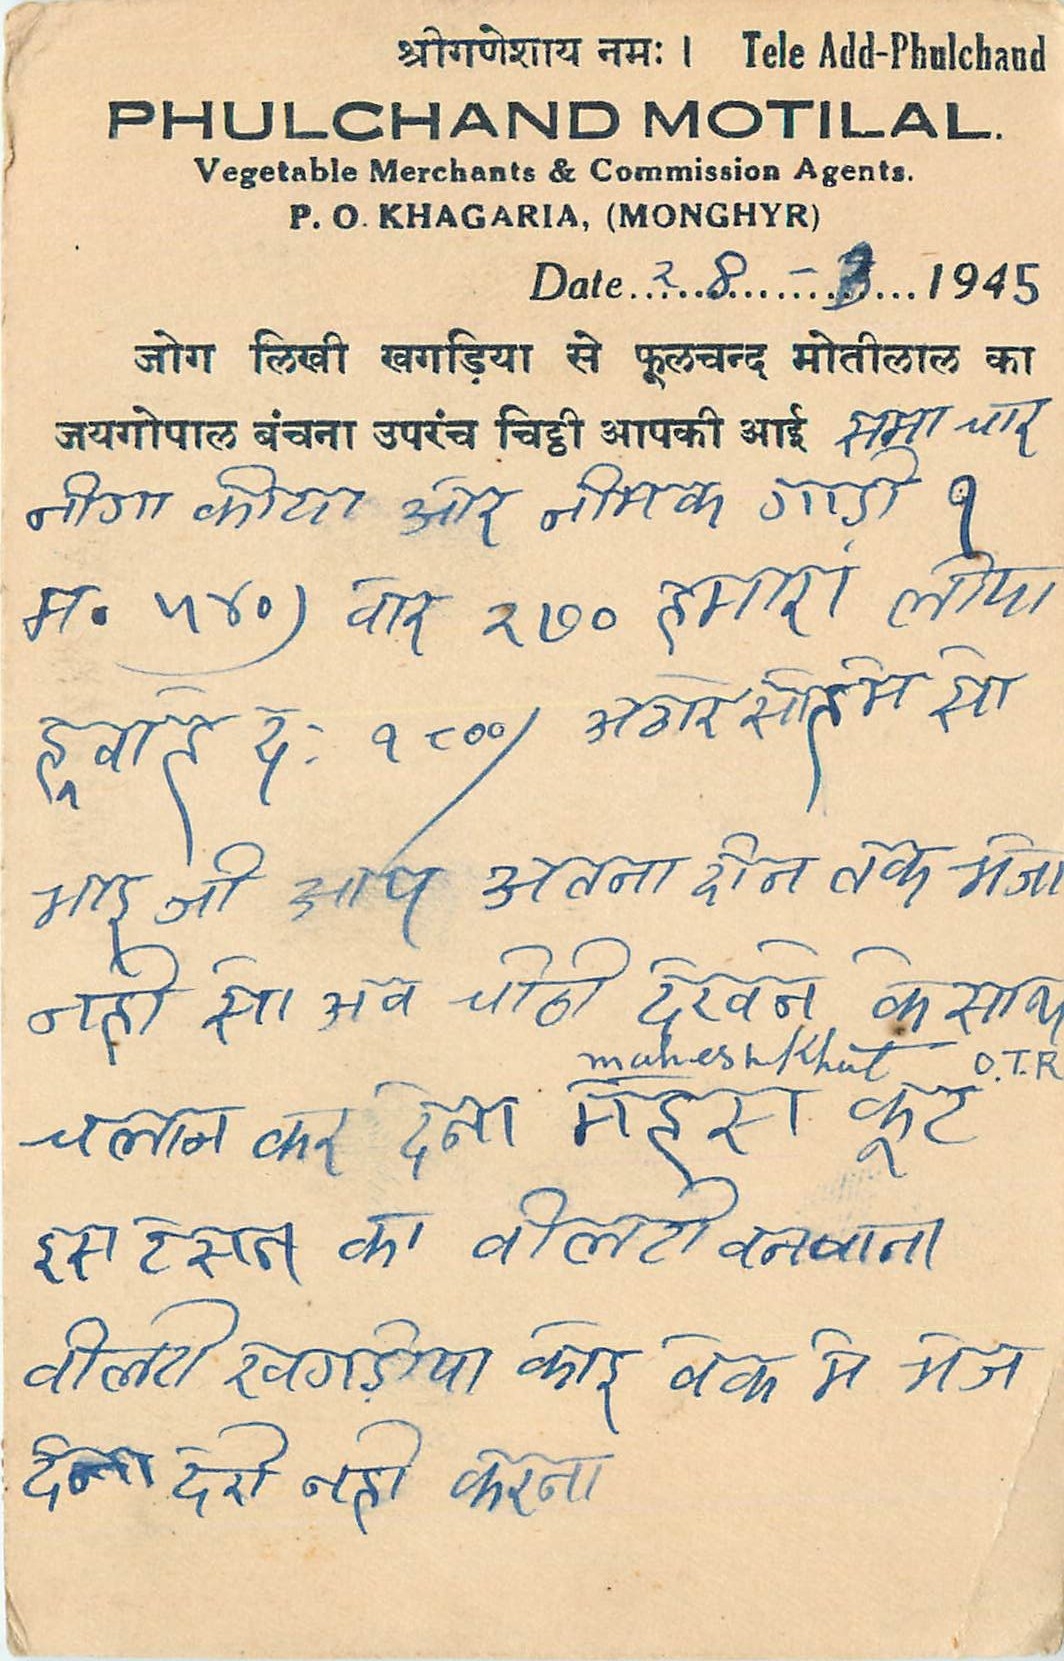 श्रीगणेशाय नमः । Tele Add-Phulchand
PHULCHAND MOTILAL.
Vegetable Merchants & Commission Agents.
P. O. KHAGARIA, (MONGHYR)
Date.....28...-3...1945
जोग लिखी खगड़िया से फूलचन्द मोतीलाल का
जयगोपाल बंचना उपरंच चिट्ठी आपकी आई समाचार
नीगा कीया और नीमक गाड़ी १
म० ५४०) वार २७० हमारा लीया
हूवाहै द: १८००/ सो
भाइ जी आप अतना दीन तक भेजा
नही सो अब चीठी देखने के साथ
maheshKhut O.T.R
चलान कर देना महेस कूट
इसटेसन का बीलटी बनवाना
बीलटी खगड़ीया कोइ बंक मे भेज
देना देरी नही करना